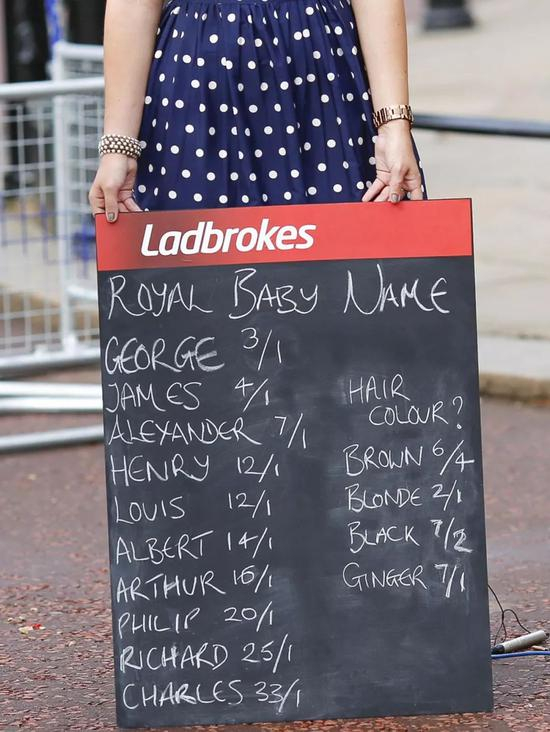 Ladbrokes
ROYAL BABY NAME
GEORGE 3/1
JAMES 4/1
ALEXANDER 7/1
HENRY 12/1
LOUIS 12/1
ALBERT 14/1
ARTHUR 16/1
PHILIP 20/1
RICHARD 25/1
CHARLES 33/1
HAIR
COLOUR?
BROWN 6/4
BLONDE 2/1
BLACK 7/2
GINGER 7/1